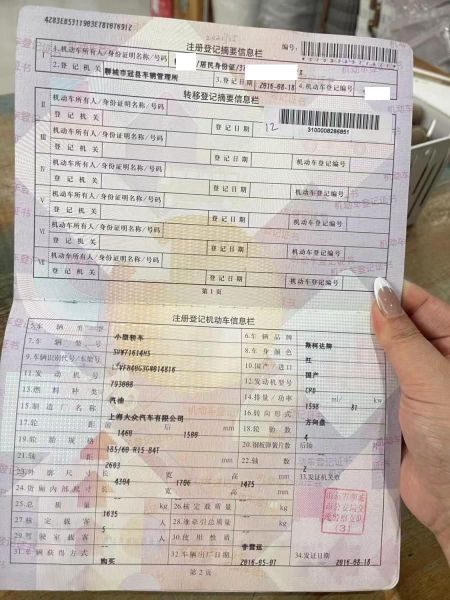 4Z83EB5311903E7810769TZ
注册登记摘要信息栏 编号:
I 1.机动车所有人/身份证明名称/号码 /居民身份证/3
2.登记机关 聊城市冠县车辆管理所 3.登记日期 2016-08-18 4.机动车登记编号
转移登记摘要信息栏
II 机动车所有人/身份证明名称/号码
登记机关 登记日期 12 3100008266851
III 机动车所有人/身份证明名称/号码
登记机关 登记日期 机动车登记编号
IV 机动车所有人/身份证明名称/号码
登记机关 登记日期 机动车登记编号
V 机动车所有人/身份证明名称/号码
登记机关 登记日期 机动车登记编号
VI 机动车所有人/身份证明名称/号码
登记机关 登记日期 机动车登记编号
VII 机动车所有人/身份证明名称/号码
登记机关 登记日期 机动车登记编号
第1页
注册登记机动车信息栏
5.车辆类型 小型轿车 6.车辆品牌 斯柯达牌
SVW71614HS 8.车身颜色 红
9.车辆识别代号/车架号 10.国产/进口 国产
11.发动机号 793008 12.发动机型号 CPD
13.燃料种类 汽油 14.排量/功率 1598 ml/ 81 kw
15.制造厂名称 上海大众汽车有限公司 16.转向形式 方向盘
17.轮距 前 1460 后 1500 mm 18.轮胎数 4
19.轮胎规格 185/60 R15 84T 20.钢板弹簧片数 后轴
21.轴距 2603 mm 22.轴数 2
23.外廓尺寸 长 4304 宽 1706 高 1475 mm 33.发证机关章
24.货厢内部尺寸 长 宽 高 mm
25.总质量 1635 kg 26.核定载质量 kg
27.核定载客 5 人 28.准牵引总质量 kg
29.驾驶室载客 人 30.使用性质 非营运
31.车辆获得方式 购买 32.车辆出厂日期 2016-05-07 34.发证日期 2016-08-18
第2页